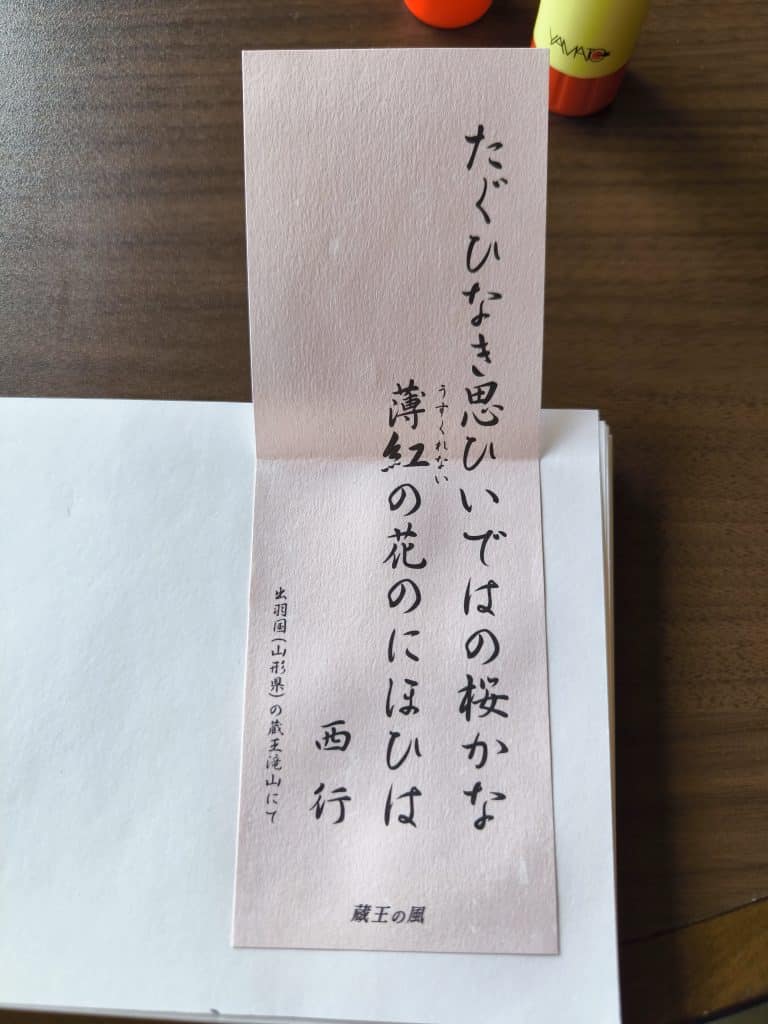 たぐひなき思ひいではの桜かな
うすくれない
薄紅の花のにほひは
西行
出羽国(山形県)の蔵王滝山にて
蔵王の風
YAMATO